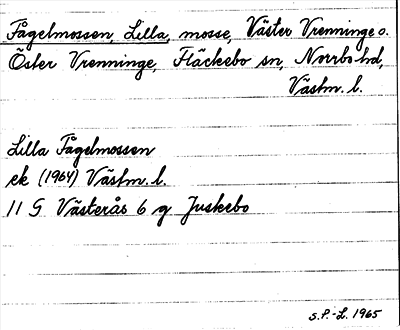 Fågelmossen, Lilla, mosse, Väster Vrenninge o.
Öster Vrenninge, Fläckebo sn, Norrbo hd,
Västm. l.
Lilla Fågelmossen
ek (1964) Västm. l.
11 G Västerås 6 g Juskebo
S.P.-L. 1965